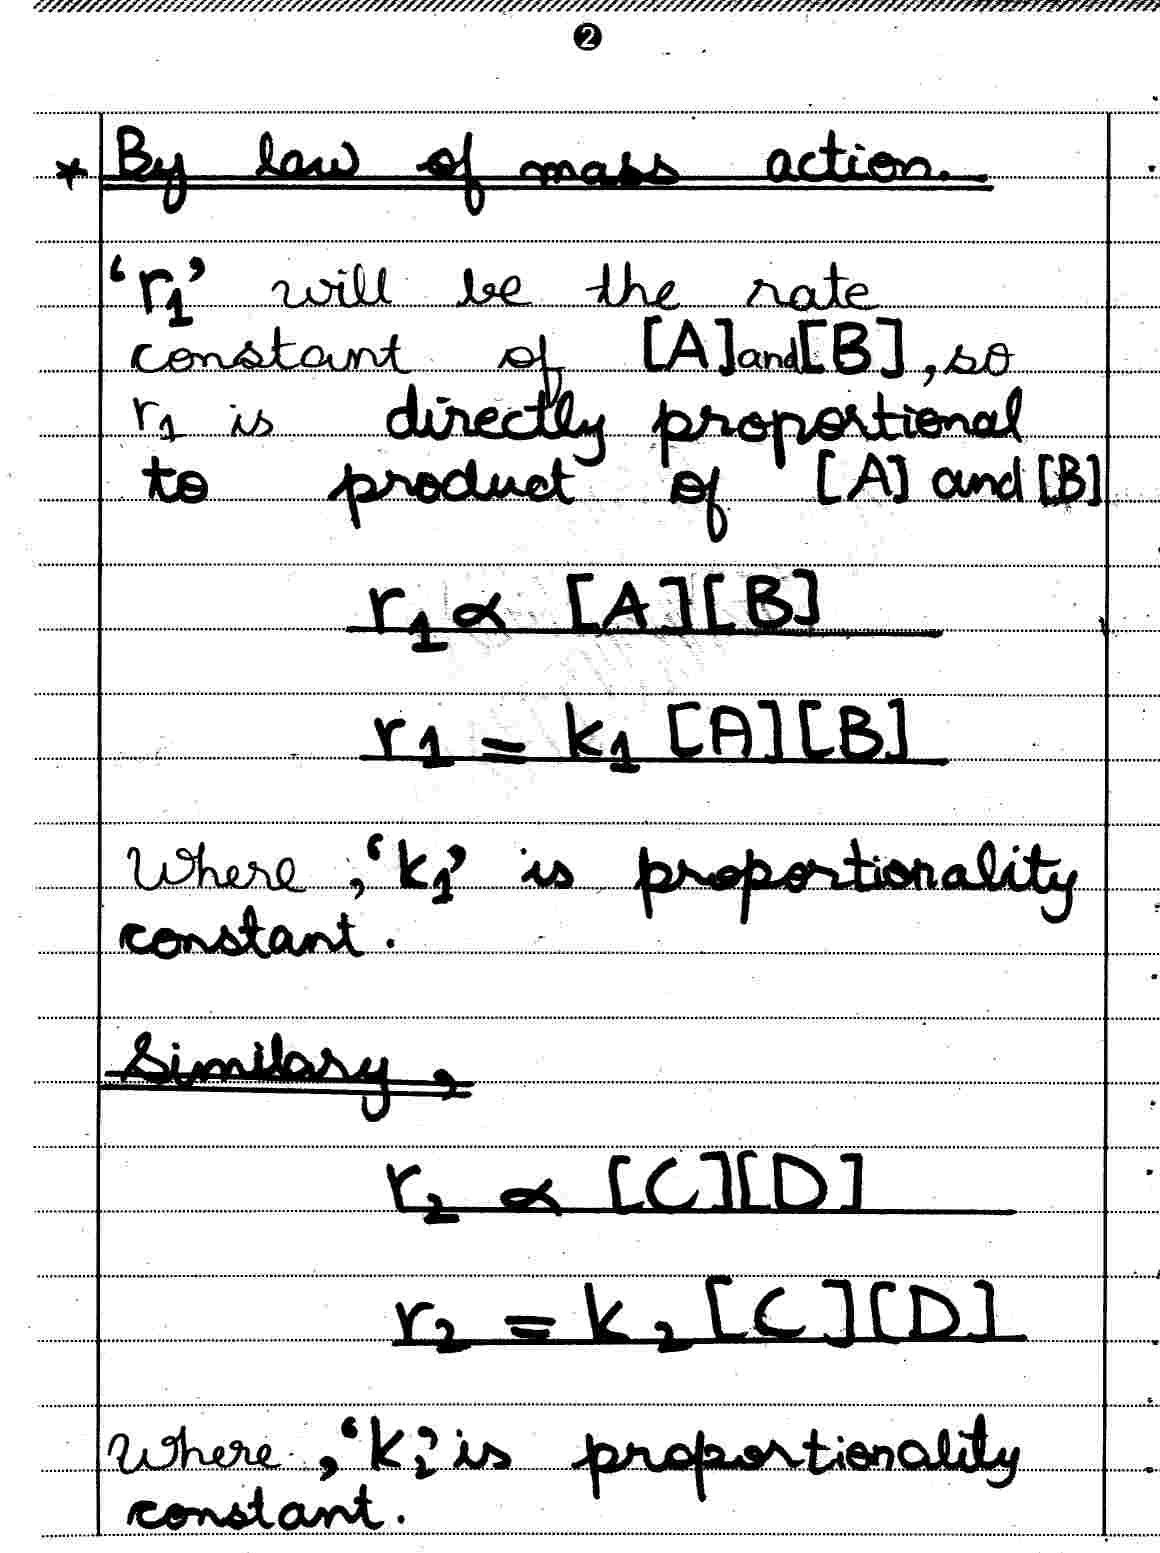 2
* By law of mass action.
'r₁' will be the rate
constant of [A] and [B], so
r₁ is directly proportional
to product of [A] and [B]
r₁ ∝ [A][B]
r₁ = k₁ [A][B]
Where, 'k₁' is proportionality
constant.
Similary,
r₂ ∝ [C][D]
r₂ = k₂ [C][D]
Where, 'k₂' is proportionality
constant.